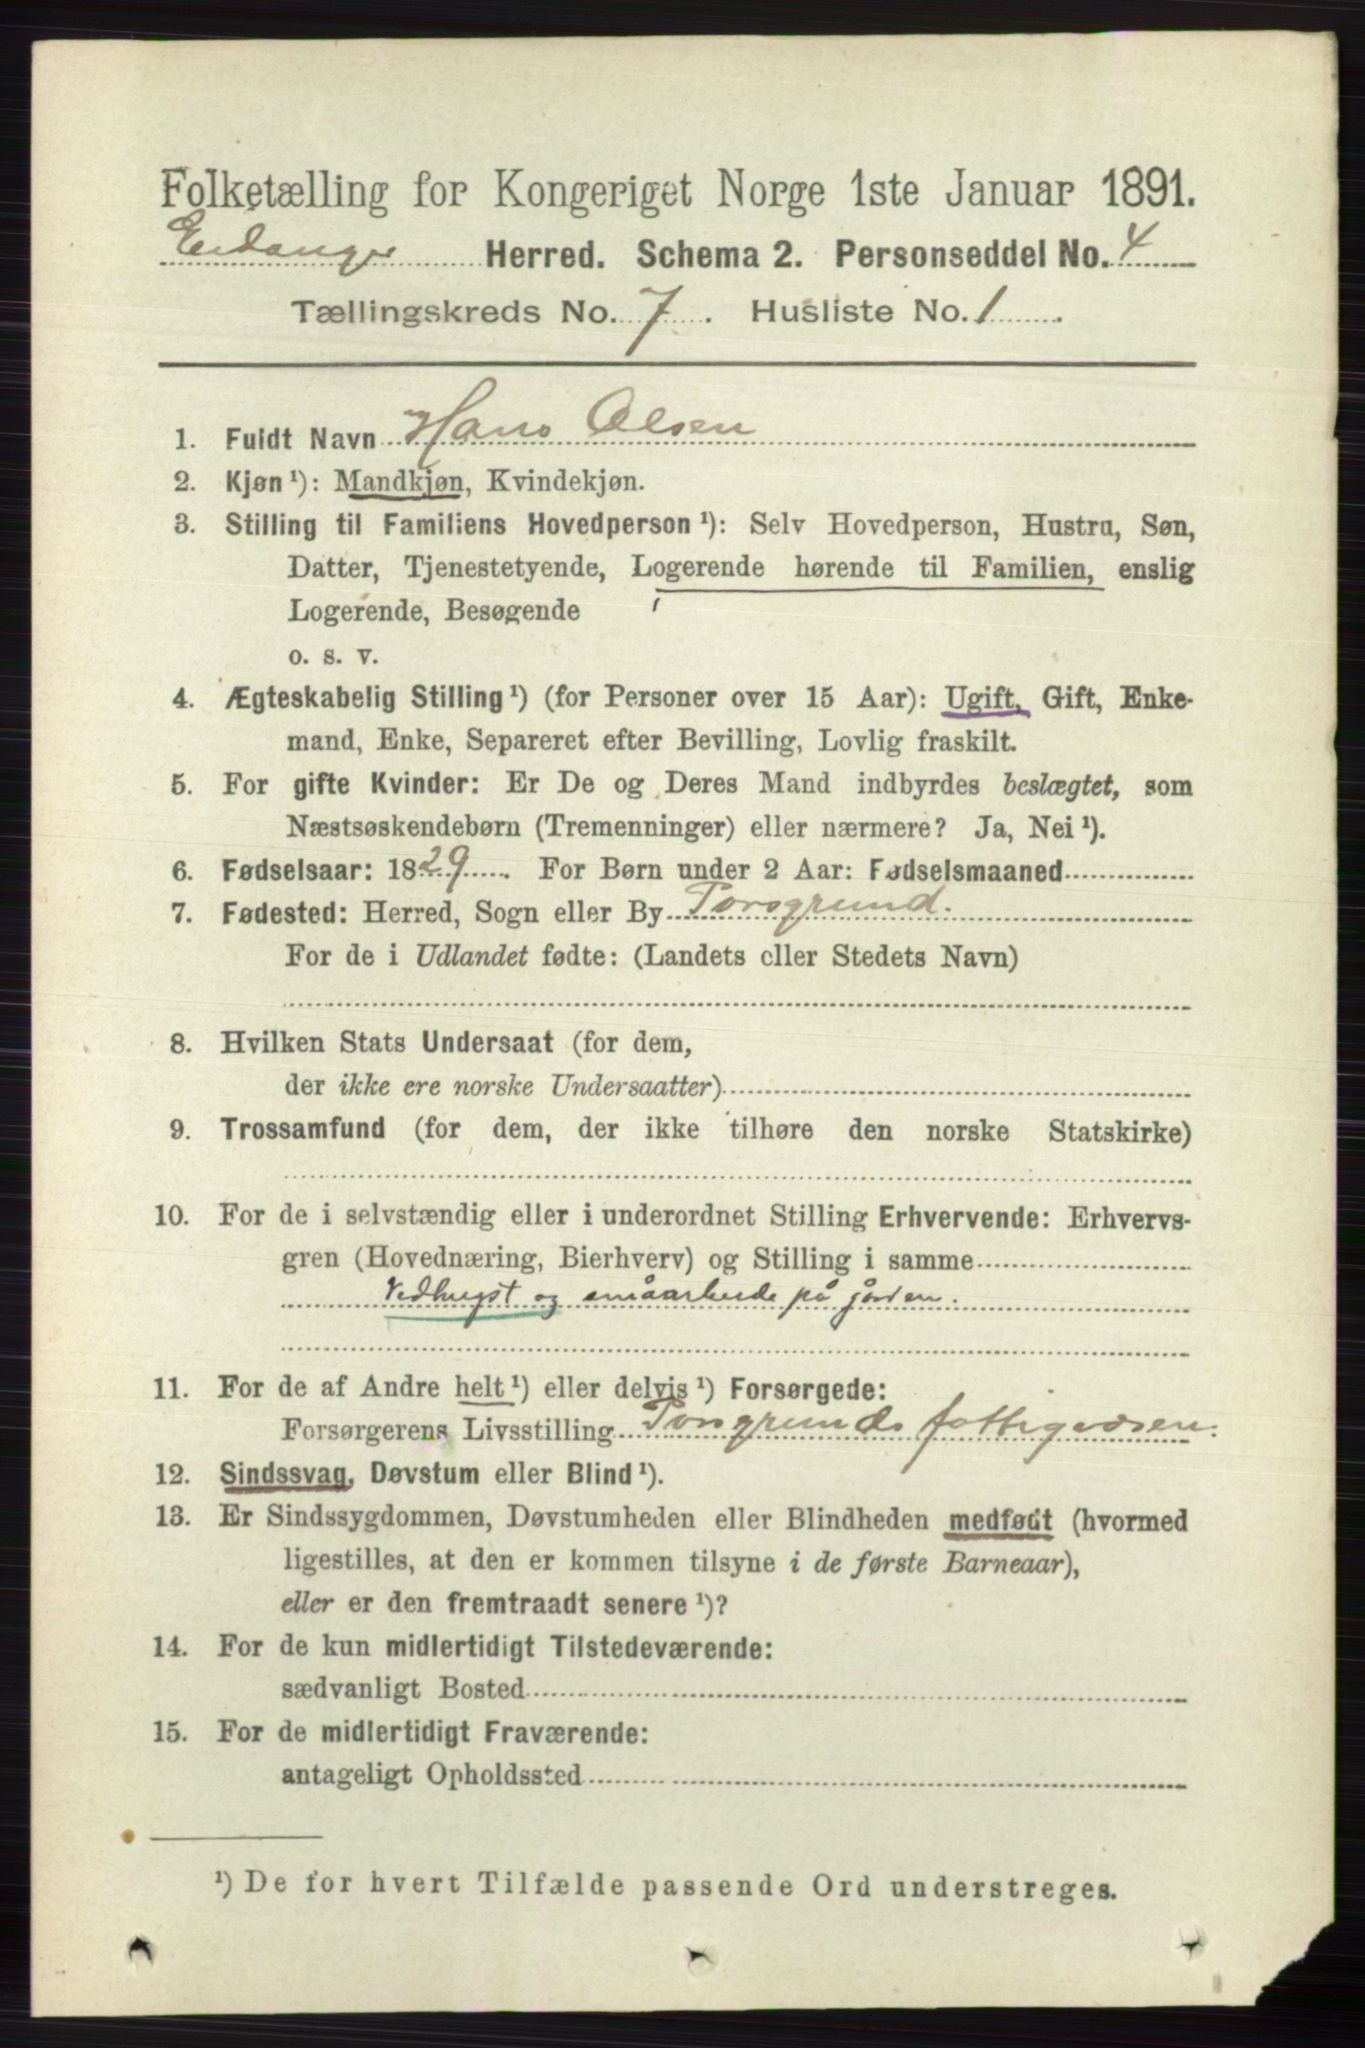 Folketælling for Kongeriget Norge 1ste Januar 1891.
Eidanger Herred. Schema 2. Personseddel No. 4
Tællingskreds No. 7. Husliste No. 1.
1. Fuldt Navn Hans Olsen
2. Kjøn ¹): Mandkjøn, Kvindekjøn.
3. Stilling til Familiens Hovedperson ¹): Selv Hovedperson, Hustru, Søn,
Datter, Tjenestetyende, Logerende hørende til Familien, enslig
Logerende, Besøgende
o. s. v.
4. Ægteskabelig Stilling ¹) (for Personer over 15 Aar): Ugift, Gift, Enke-
mand, Enke, Separeret efter Bevilling, Lovlig fraskilt.
5. For gifte Kvinder: Er De og Deres Mand indbyrdes beslægtet, som
Næstsøskendebørn (Tremenninger) eller nærmere? Ja, Nei ¹).
6. Fødselsaar: 1829. For Børn under 2 Aar: Fødselsmaaned
7. Fødested: Herred, Sogn eller By Porsgrund.
For de i Udlandet fødte: (Landets eller Stedets Navn)
8. Hvilken Stats Undersaat (for dem,
der ikke ere norske Undersaatter)
9. Trossamfund (for dem, der ikke tilhøre den norske Statskirke)
10. For de i selvstændig eller i underordnet Stilling Erhvervende: Erhvervs-
gren (Hovednæring, Bierhverv) og Stilling i samme
Vedhugst og småarbeide på jorden.
11. For de af Andre helt ¹) eller delvis ¹) Forsørgede:
Forsørgerens Livsstilling Porsgrunds fattigvæsen.
12. Sindssvag, Døvstum eller Blind ¹).
13. Er Sindssygdommen, Døvstumheden eller Blindheden medfødt (hvormed
ligestilles, at den er kommen tilsyne i de første Barneaar),
eller er den fremtraadt senere ¹)?
14. For de kun midlertidigt Tilstedeværende:
sædvanligt Bosted
15. For de midlertidigt Fraværende:
antageligt Opholdssted
¹) De for hvert Tilfælde passende Ord understreges.